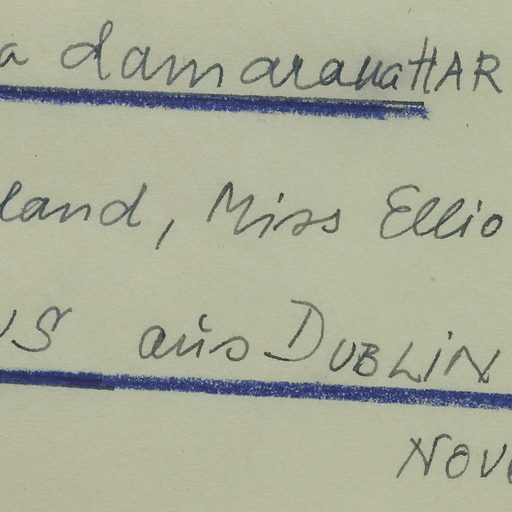 a damaranatHAR
land, Miss Ellio
US aus DUBLIN
NOVE